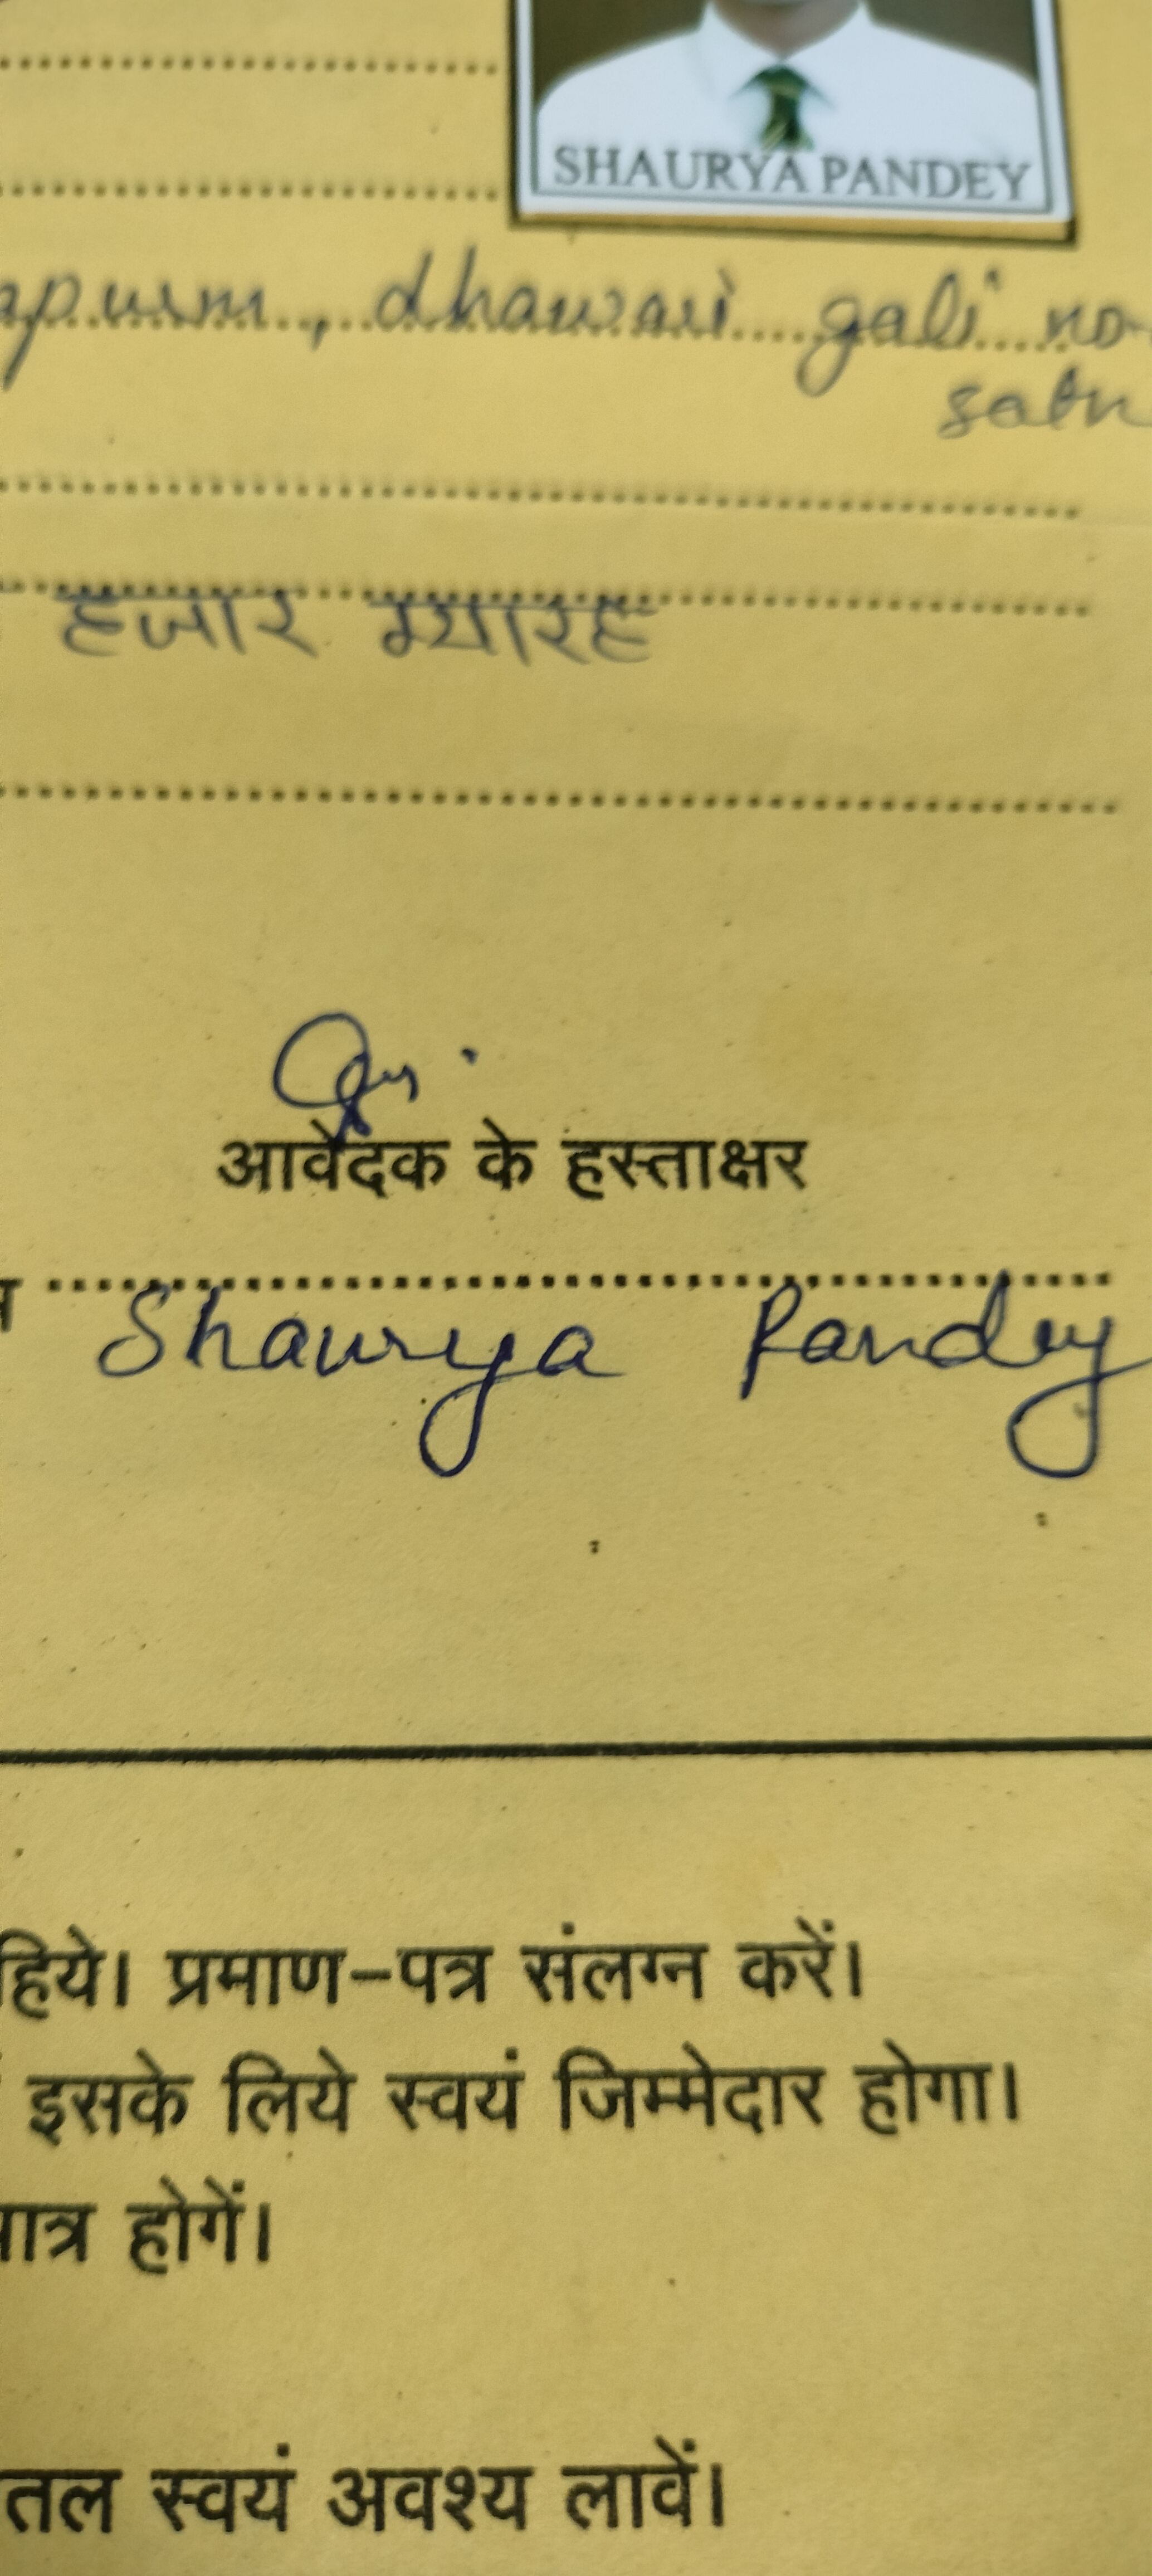 SHAURYA PANDEY
dhawari gali no-
हजार ग्यारह
आवेदक के हस्ताक्षर
Shaurya Pandey
हिये। प्रमाण-पत्र संलग्न करें।
इसके लिये स्वयं जिम्मेदार होगा।
पात्र होगें।
तल स्वयं अवश्य लावें।